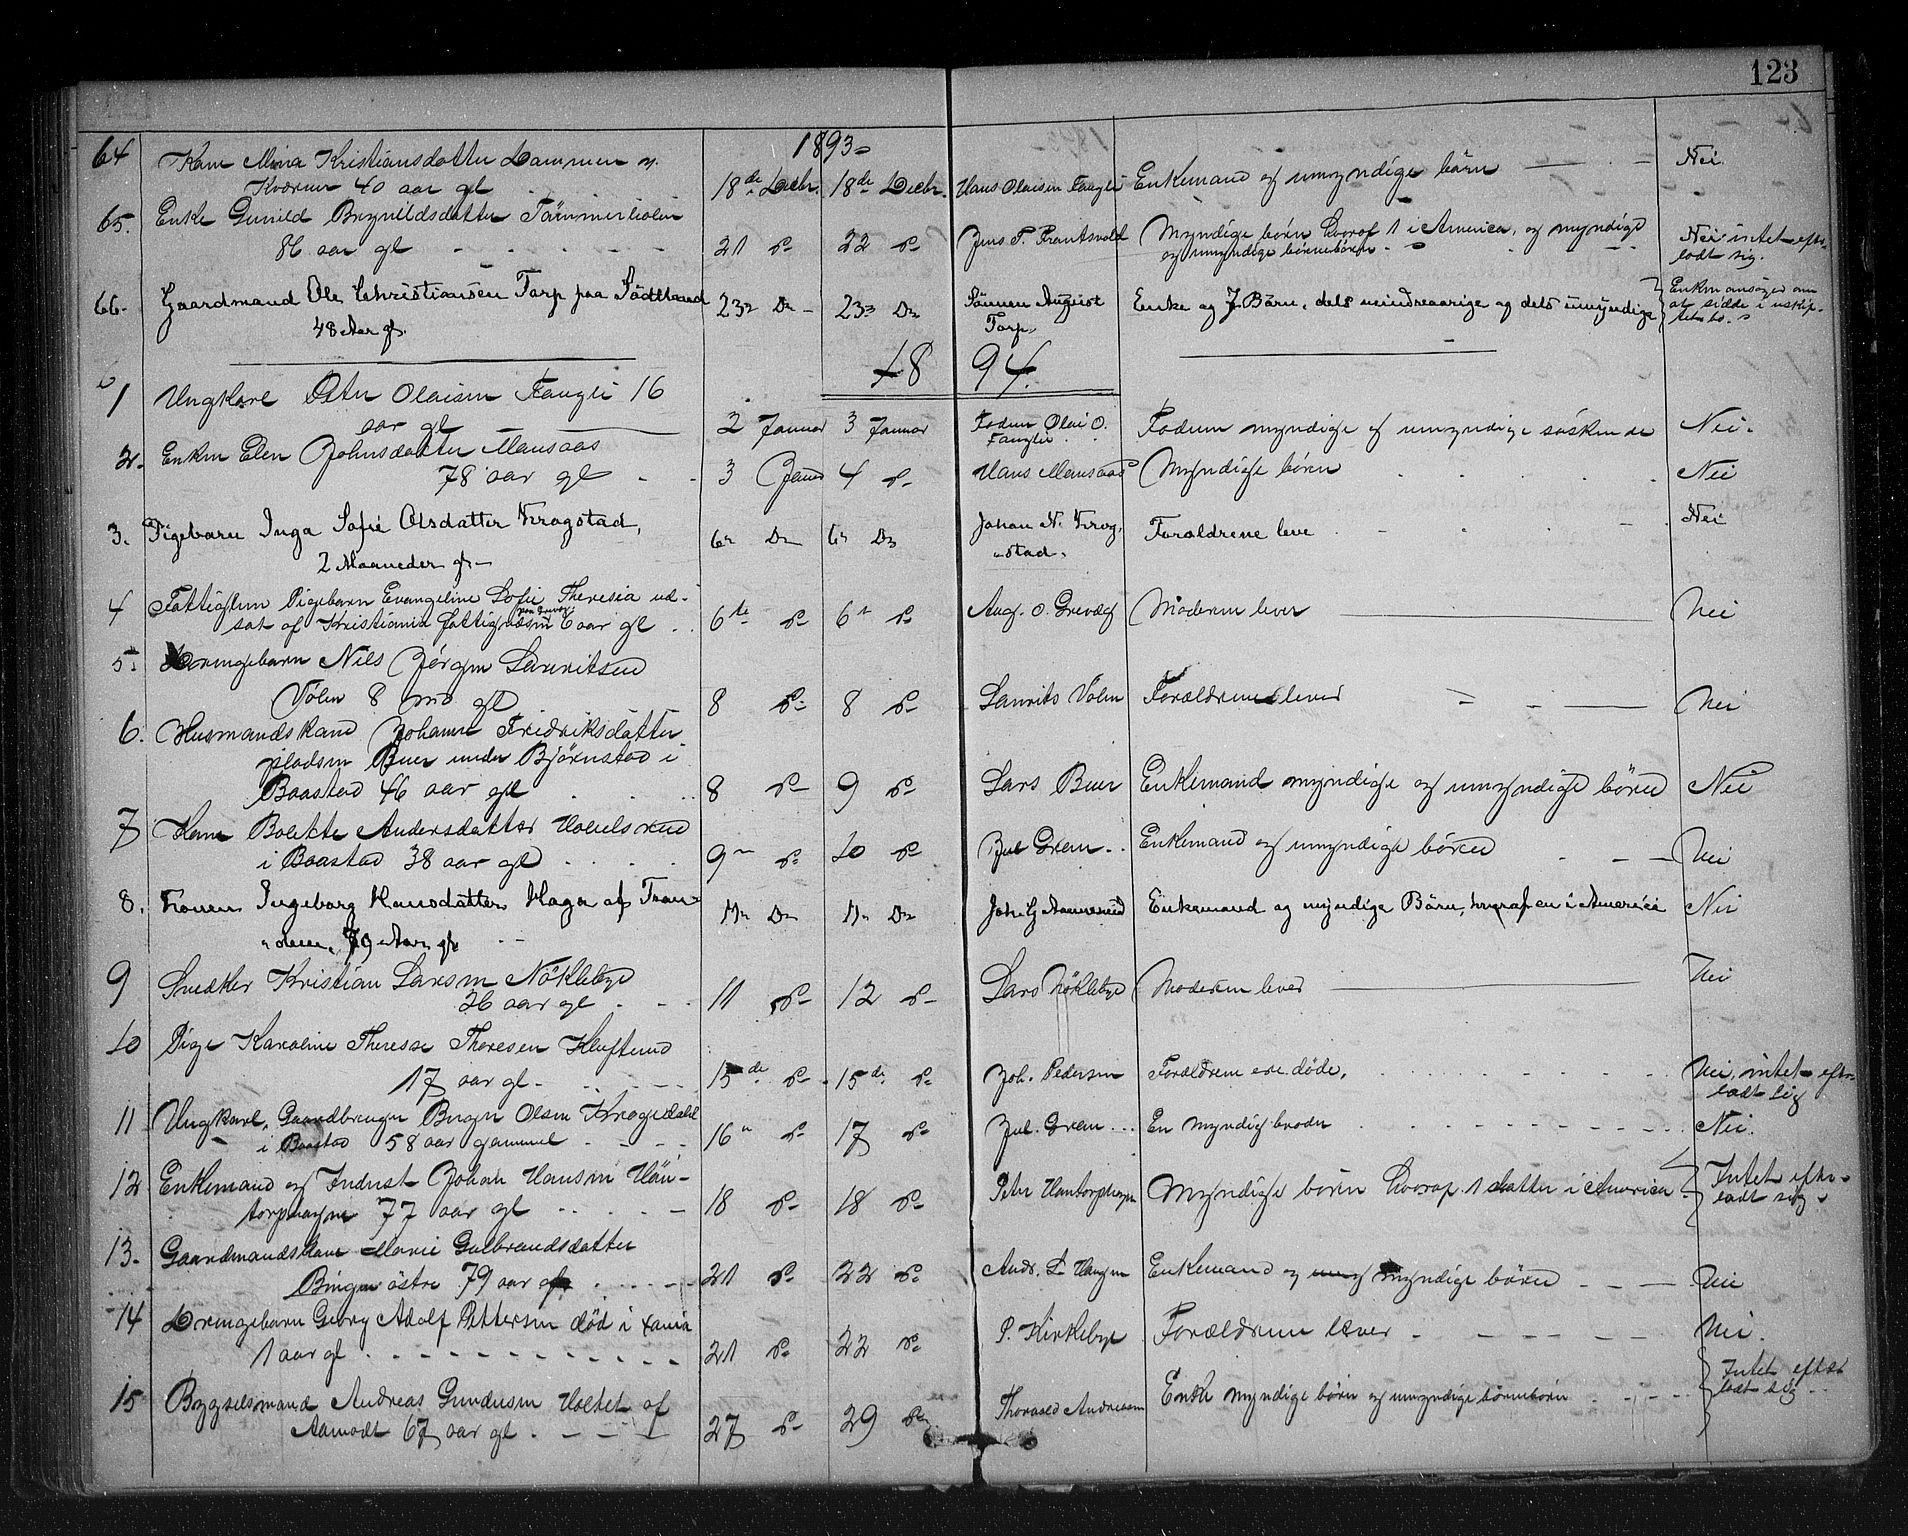 123
1893
64 Kone Mina Kristiansdatter Lammen
Kværner 40 aar gl 18de Decbr. 18de Decbr. Hans Olaisen Fangli Enkemand og umyndige børn Nei
65. Enke Gunild Brynildsdatter Tömmerholm
86 aar gl 21 D- 22 D- Jens T. Frantsvold Myndige børn hvoraf 1 i America, og myndige
og umyndige børnebørn Nei intet efter-
ladt sig.
66. Gaardmand Ole Christiansen Torp paa Södtland
48 Aar gl. 23 D- 23 D- Sönnen August
Torp. Enke og 7 Börn, dels mindreaarige og dels umyndige Enken ansøger om
at sidde i uskif-
tet bo.
18 94.
1 Ungkarl Olaisen Fangli 16
aar gl 2 Januar 3 Januar Faderen Olai O.
Fangli Faderen myndige og umyndige søskende Nei.
2. Enken Elen Johnsdatter Mansaas
78 aar gl 3 Janu 4 D- Hans Mansaas Myndige børn Nei
3. Pigebarn Inga Sofie Olsdatter Krogstad,
2 Maaneder gl. 6 D- 6 D- Johan N. Krog-
stad. Forældrene leve Nei
4 Fattiglem Pigebarn Evangeline Sofie Theresia ud-
sat af Kristiania fattigvæsen 6 aar gl 6te D- 6 D- Aug. O. Grevæg Moderen lever Nei
5. Drengebarn Nils Jörgen Lauritsen
Volen 8 md gl 8 D- 8 D- Laurits Volen Forældrene lever Nei
6. Husmandskone Johanne Fridriksdatter
pladsen Buer under Bjørnstad i
Baastad 46 aar gl 8 D- 9 D- Lars Buer Enkemand myndige og umyndige børn Nei
7 Kone Bolette Andersdatter
i Baastad 38 aar gl 9 D- 10 D- Jul Grem Enkemand og umyndige børn Nei
8. Konen Ingeborg Hansdatter Haga af Tran-
79 Aar gl. 11 D- 11 D- Joh. G Enkemand og myndige Börn, hvoraf en i Amerika Nei
9 Snedker Kristian Larsen Nöklebye
26 aar gl 11 D- 12 D- Lars Nöklebye Moderen lever Nei
10 Pige Karoline Therese Thoresen Kluftund
17 aar gl. 15de D- 15de D- Joh. Pedersen Forældrene ere døde. Nei, intet efter-
ladt sig
11 Ungkarl, Gaardbruger Bryn Olsen Krogedahl
i Baastad 58 aar gammel 16 D- 17 D- Jul. Grem En myndig broder Nei.
12 Enkemand og Inderst Johan Hansen Hän-
torphagen 77 aar gl 18 D- 18 D- Peter Hantorphagen Myndige børn hvoraf 1 datter i America Intet efter-
ladt sig.
13. Gaardmandskone Marie Gulbrandsdatter
Bingen östre 79 aar gl 21 D- 22 D- Andr. L Haugen Enkemand og myndige børn Nei
14 Drengebarn Georg Adolf Pettersen död i Xania
1 aar gl 21 D- 22 D- P. Kirkebye Forældrene lever Nei.
15 Bygselsmand Andreas Gundersen Holtet af
Aamodt 67 aar gl 27 D- 29 D- Thorvald Andreasen Enke myndige børn og umyndige børnebørn Intet efter
ladt sig